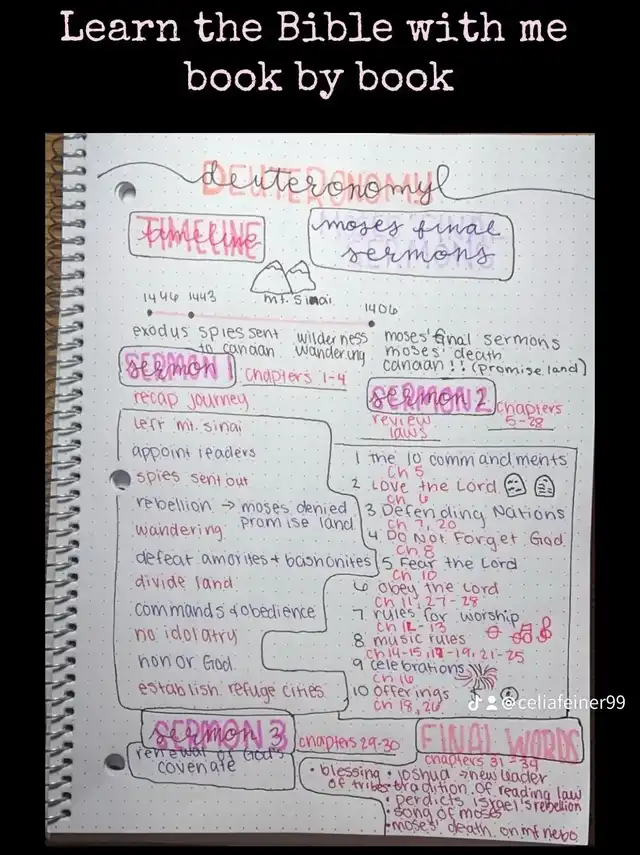 Learn the Bible with me
book by book
DEUTERONOMY
deuteronomy
TIMELINE
timeline
moses final
sermons
mt. Sinai
1446 1443
1406
exodus spies sent
to canaan
wilderness
wandering
moses' final sermons
moses' death
canaan!! (promise land)
SERMON 1
sermon 1
chapters 1-4
recap journey
left mt. sinai
appoint leaders
spies sent out
rebellion → moses denied
promise land
wandering
defeat amorites + bashonites
divide land
commands & obedience
no idolatry
honor God
establish refuge cities
SERMON 2
sermon 2
chapters
5-28
review
laws
1 the 10 commandments
ch 5
2 Love the Lord
ch 6
3 Defending Nations
ch 7, 20
4 Do Not Forget God
ch 8
5 Fear the Lord
ch 10
6 obey the Lord
ch 11, 27-28
7 rules for worship
ch 12-13
8 music rules
ch 14-15, 17-19, 21-25
9 celebrations
ch 16
10 offerings
ch 18, 26
@celiafeiner99
SERMON 3
sermon 3
chapters 29-30
renewal of God's
covenate
FINAL WORDS
chapters 31-34
• blessing
of tribes
• joshua → new leader
• tradition of reading law
• perdicts israel's rebellion
• song of moses
• moses' death on mt nebo